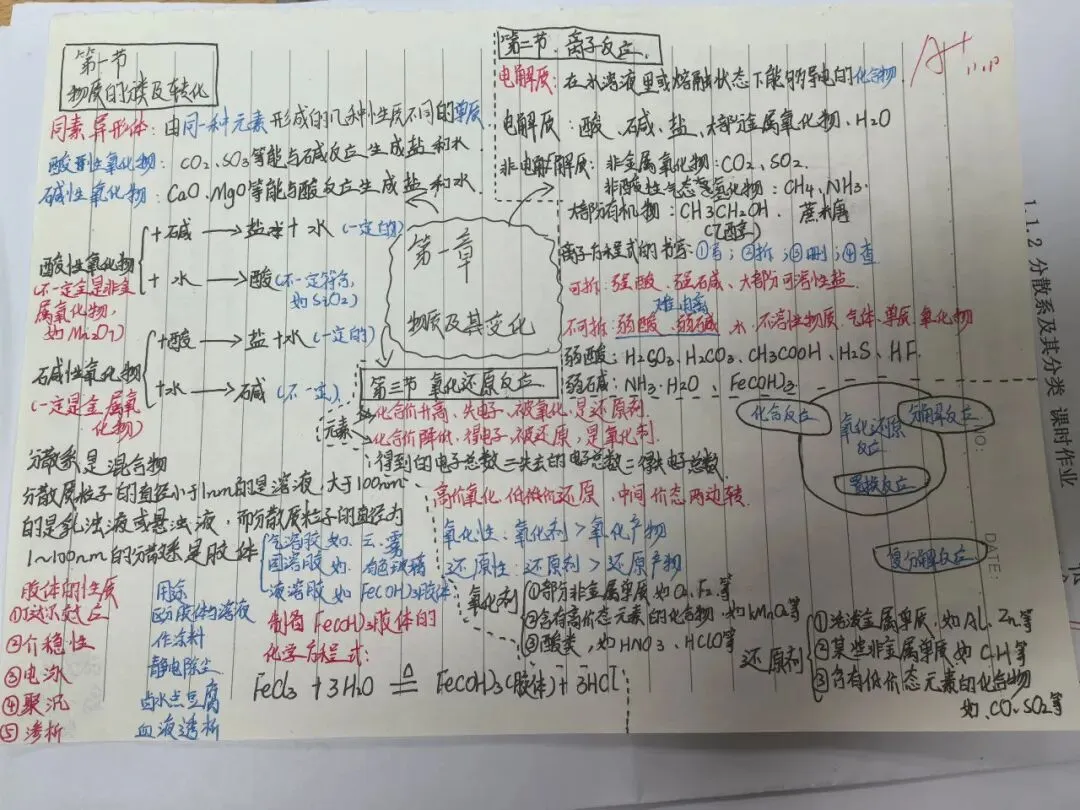 第一节
物质的分类及转化
同素异形体：由同一种元素形成的几种性质不同的单质
酸性氧化物：CO₂、SO₃等能与碱反应生成盐和水.
碱性氧化物：CaO、MgO等能与酸反应生成盐和水.
酸性氧化物
(不一定全是非金
属氧化物，
如Mn₂O₇)
+碱 → 盐 + 水 (一定的)
+ 水 → 酸 (不一定符合，
如SiO₂)
碱性氧化物
(一定是金属氧
化物)
+酸 → 盐+水 (一定的)
+水 → 碱 (不一定)
分散系是混合物
分散质粒子的直径小于1nm的是溶液，大于100nm
的是乳浊液或悬浊液，而分散质粒子的直径为
1~100nm的分散系是胶体
气溶胶如：云、雾
固溶胶如：有色玻璃
液溶胶如Fe(OH)₃胶体
胶体的性质 用途
①丁达尔效应 区分胶体与溶液
②介稳性 作涂料
③电泳 静电除尘
④聚沉 卤水点豆腐
⑤渗析 血液透析
制备Fe(OH)₃胶体的
化学方程式：
FeCl₃ + 3H₂O ≜ Fe(OH)₃(胶体) + 3HCl
第一章
物质及其变化
第二节 离子反应.
电解质：在水溶液里或熔融状态下能够导电的化合物.
电解质：酸、碱、盐、大部分金属氧化物、H₂O
非电解质：非金属氧化物：CO₂、SO₂.
非酸性气态氢化物：CH₄、NH₃.
大部分有机物：CH3CH₂OH. 蔗糖
(乙醇)
离子方程式的书写：①写；②拆；③删；④查
可拆：强酸、强碱、大部分可溶性盐.
难电离
不可拆：弱酸、弱碱、水、不溶性物质、气体、单质、氧化物
弱酸：H₂SO₃、H₂CO₃、CH₃COOH、H₂S、HF.
弱碱：NH₃·H₂O、Fe(OH)₃
第三节 氧化还原反应.
元素
化合价升高、失电子、被氧化，是还原剂.
化合价降低、得电子、被还原，是氧化剂.
得到的电子总数=失去的电子总数=得失电子总数
高价氧化，低价还原，中间价态两边转
氧化性：氧化剂>氧化产物
还原性：还原剂>还原产物
氧化剂
①部分非金属单质，如O₂、F₂等
②含有高价态元素的化合物，如KMnO₄等
③酸类，如HNO₃、HClO等
还原剂
①活泼金属单质，如Al、Zn等
②某些非金属单质，如C、H等
③含有低价态元素的化合物
如、CO、SO₂等
化合反应
氧化还原
反应
分解反应
置换反应
复分解反应
A+
1.1.2 分散系及其分类 课时作业
NO:
DATE: